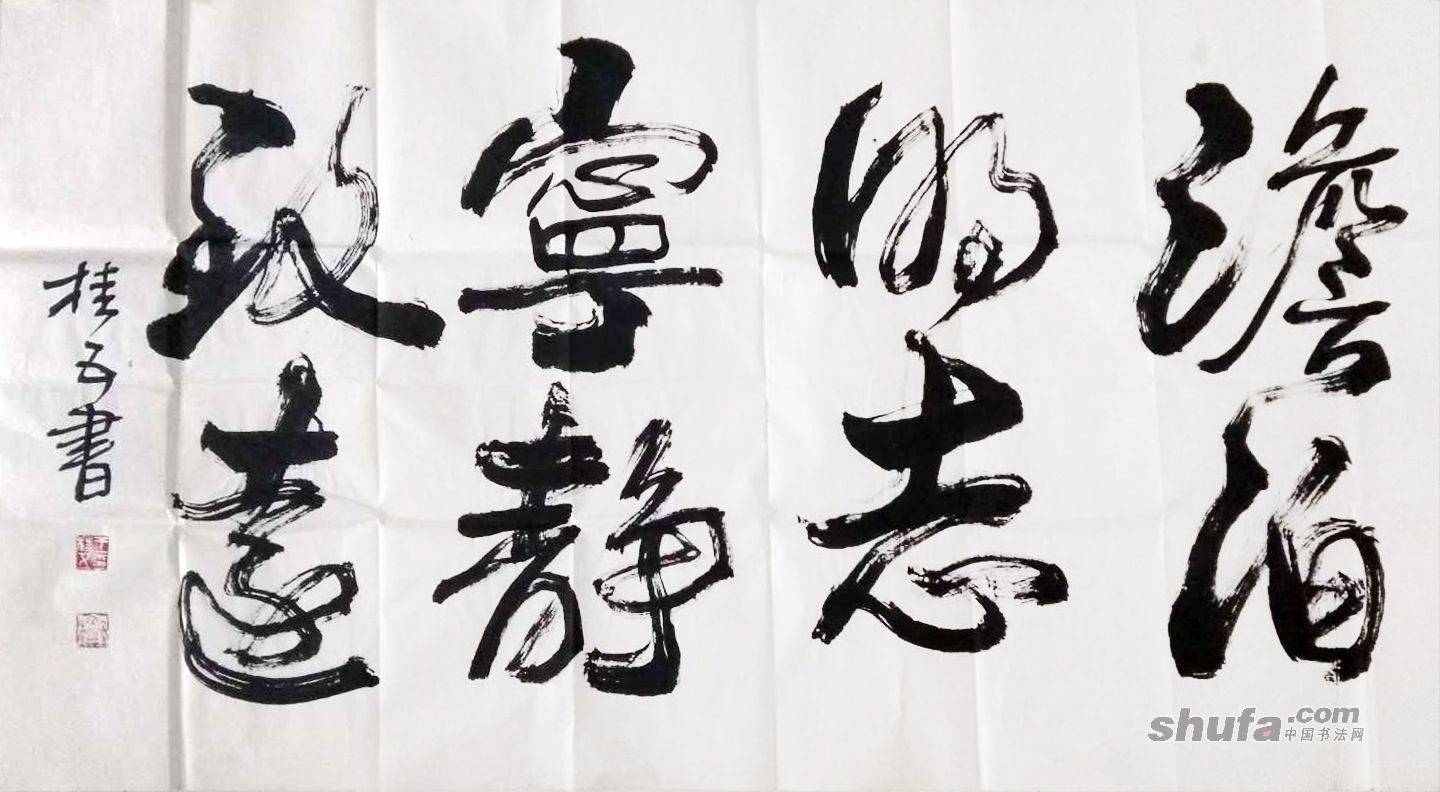 澹泊
明志
寧静
致遠
桂五書
shufa.com
中国书法网